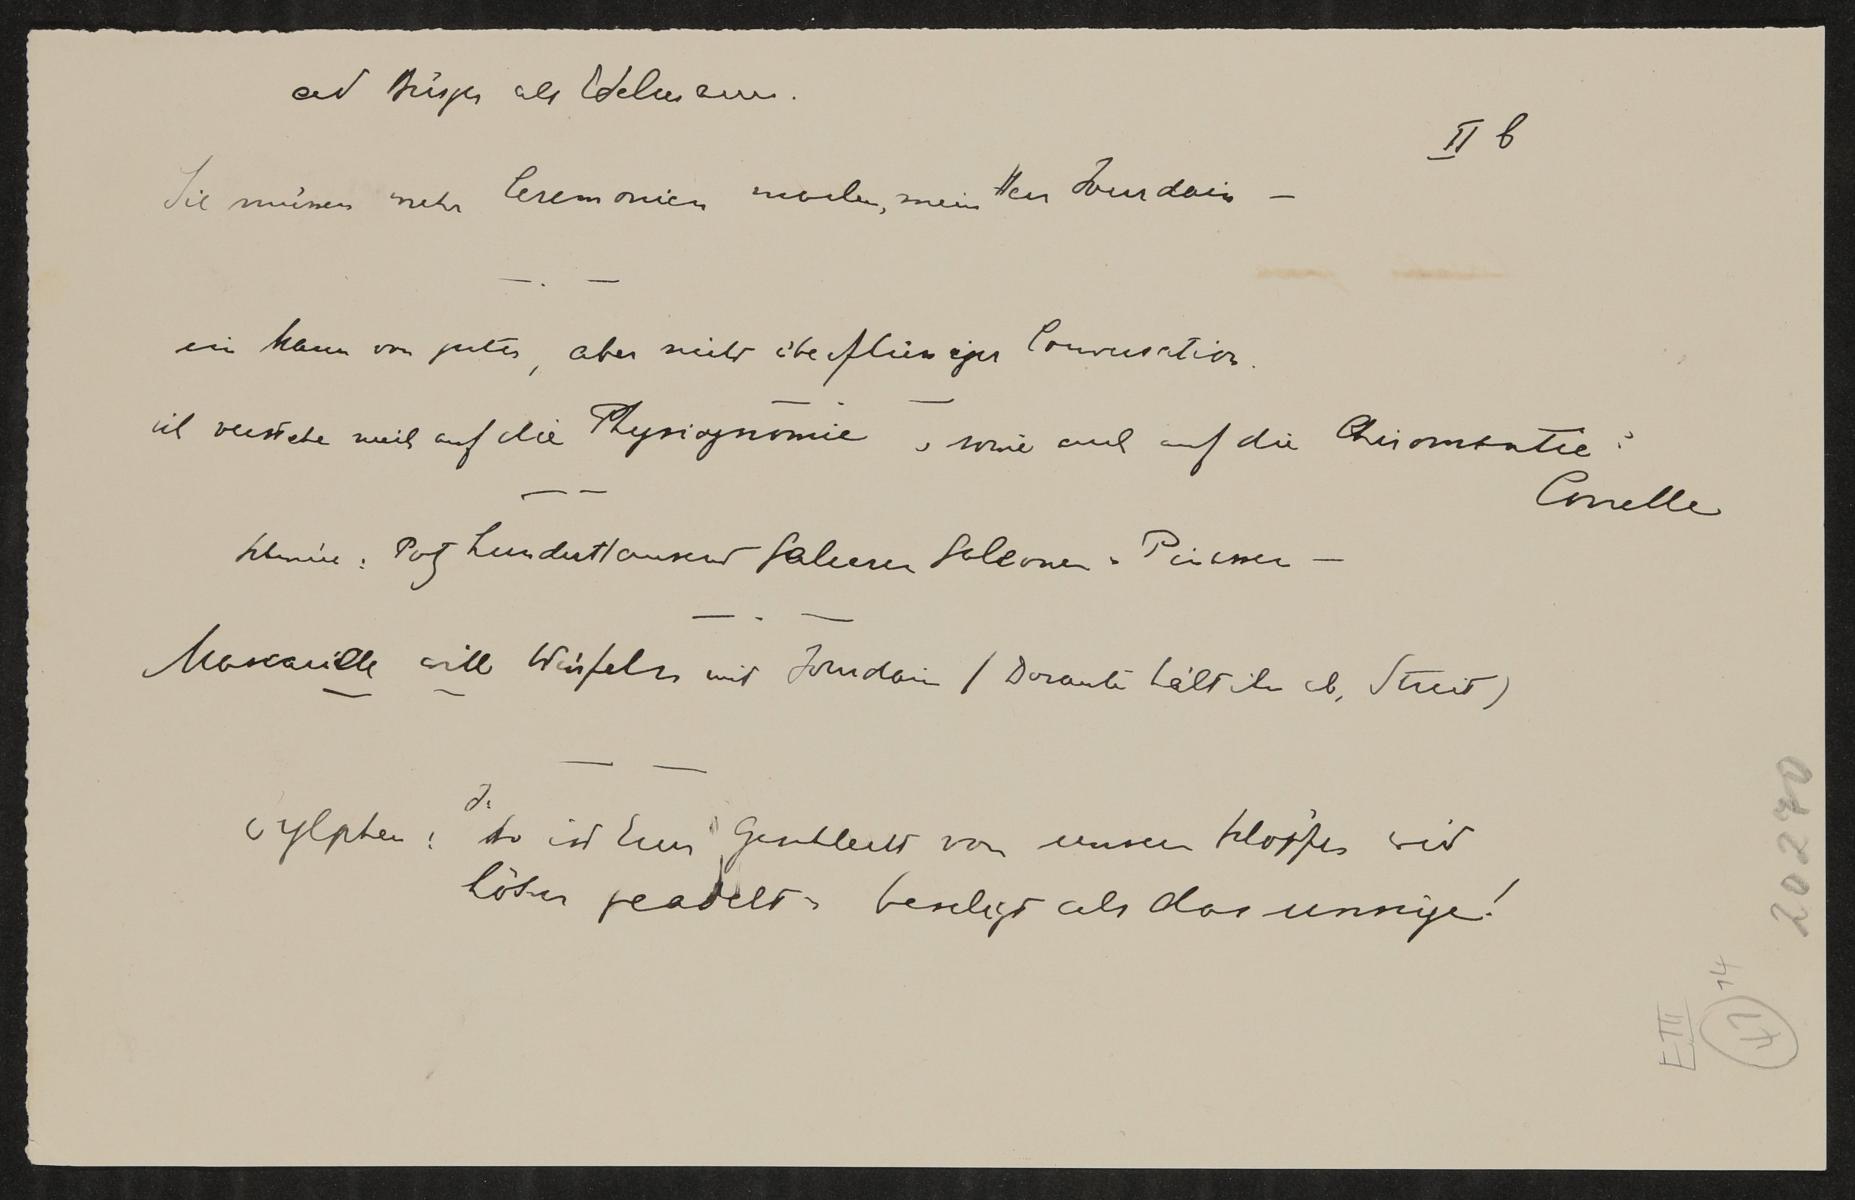 ad Bürger als Edelmann.
II b
Sie müssen mehr Ceremonien machen, mein Herr Jourdain —
— . —
ein Mann von guter, aber nicht überflüssiger Conversation.
— . —
ich verstehe mich auf die Physiognomie, sowie auch auf die Chiromantie:
— —
Potz hunderttausend Galeeren Galeonen Pinassen —
— . —
Mascarille will Würfeln mit Jourdain (Dorante hält ihn ab, Streit)
— —
Sylphen: So ist Euer Geschlecht von unserm Schöpfer wird
höher geadelt u beseligt als das unsrige!
202470
14
41
E III